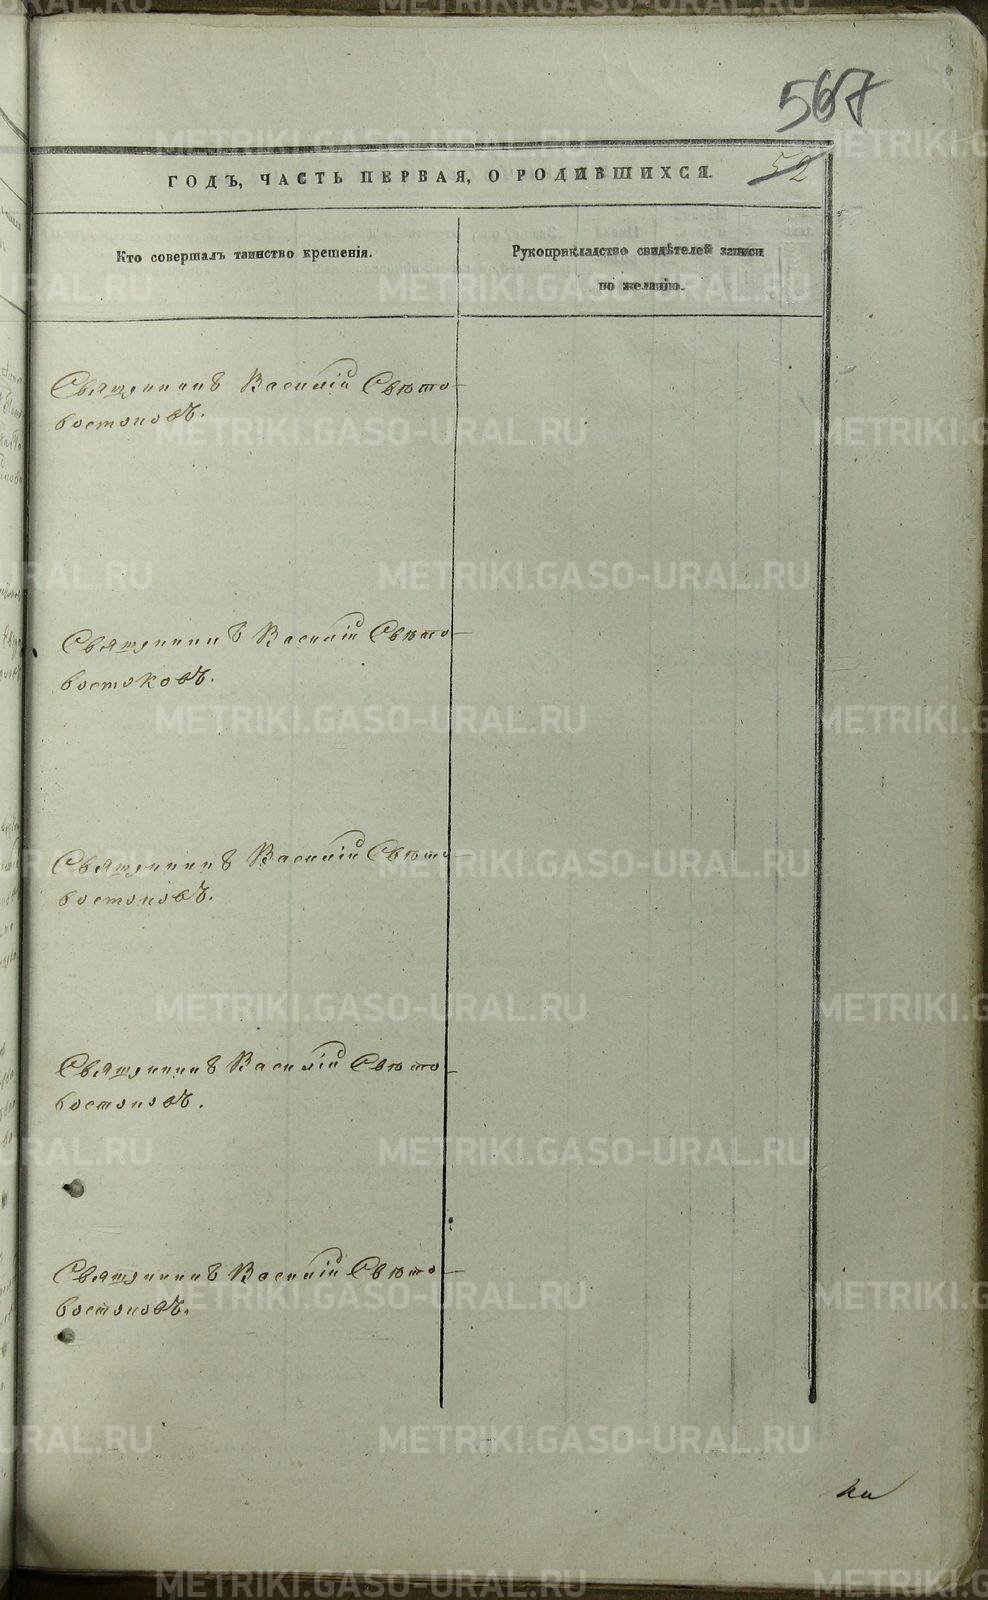 567
52
ГОДЪ, ЧАСТЬ ПЕРВАЯ, О РОДИВШИХСЯ.
Кто совершалъ таинство крещенія.
Рукоприкладство свидѣтелей записи
по желанію.
Священникъ Василій Свѣто-
востоковъ.
Священникъ Василій Свѣто-
востоковъ.
Священникъ Василій Свѣто-
востоковъ.
Священникъ Василій Свѣто-
востоковъ.
Священникъ Василій Свѣто-
востоковъ.
METRIKI.GASO-URAL.RU